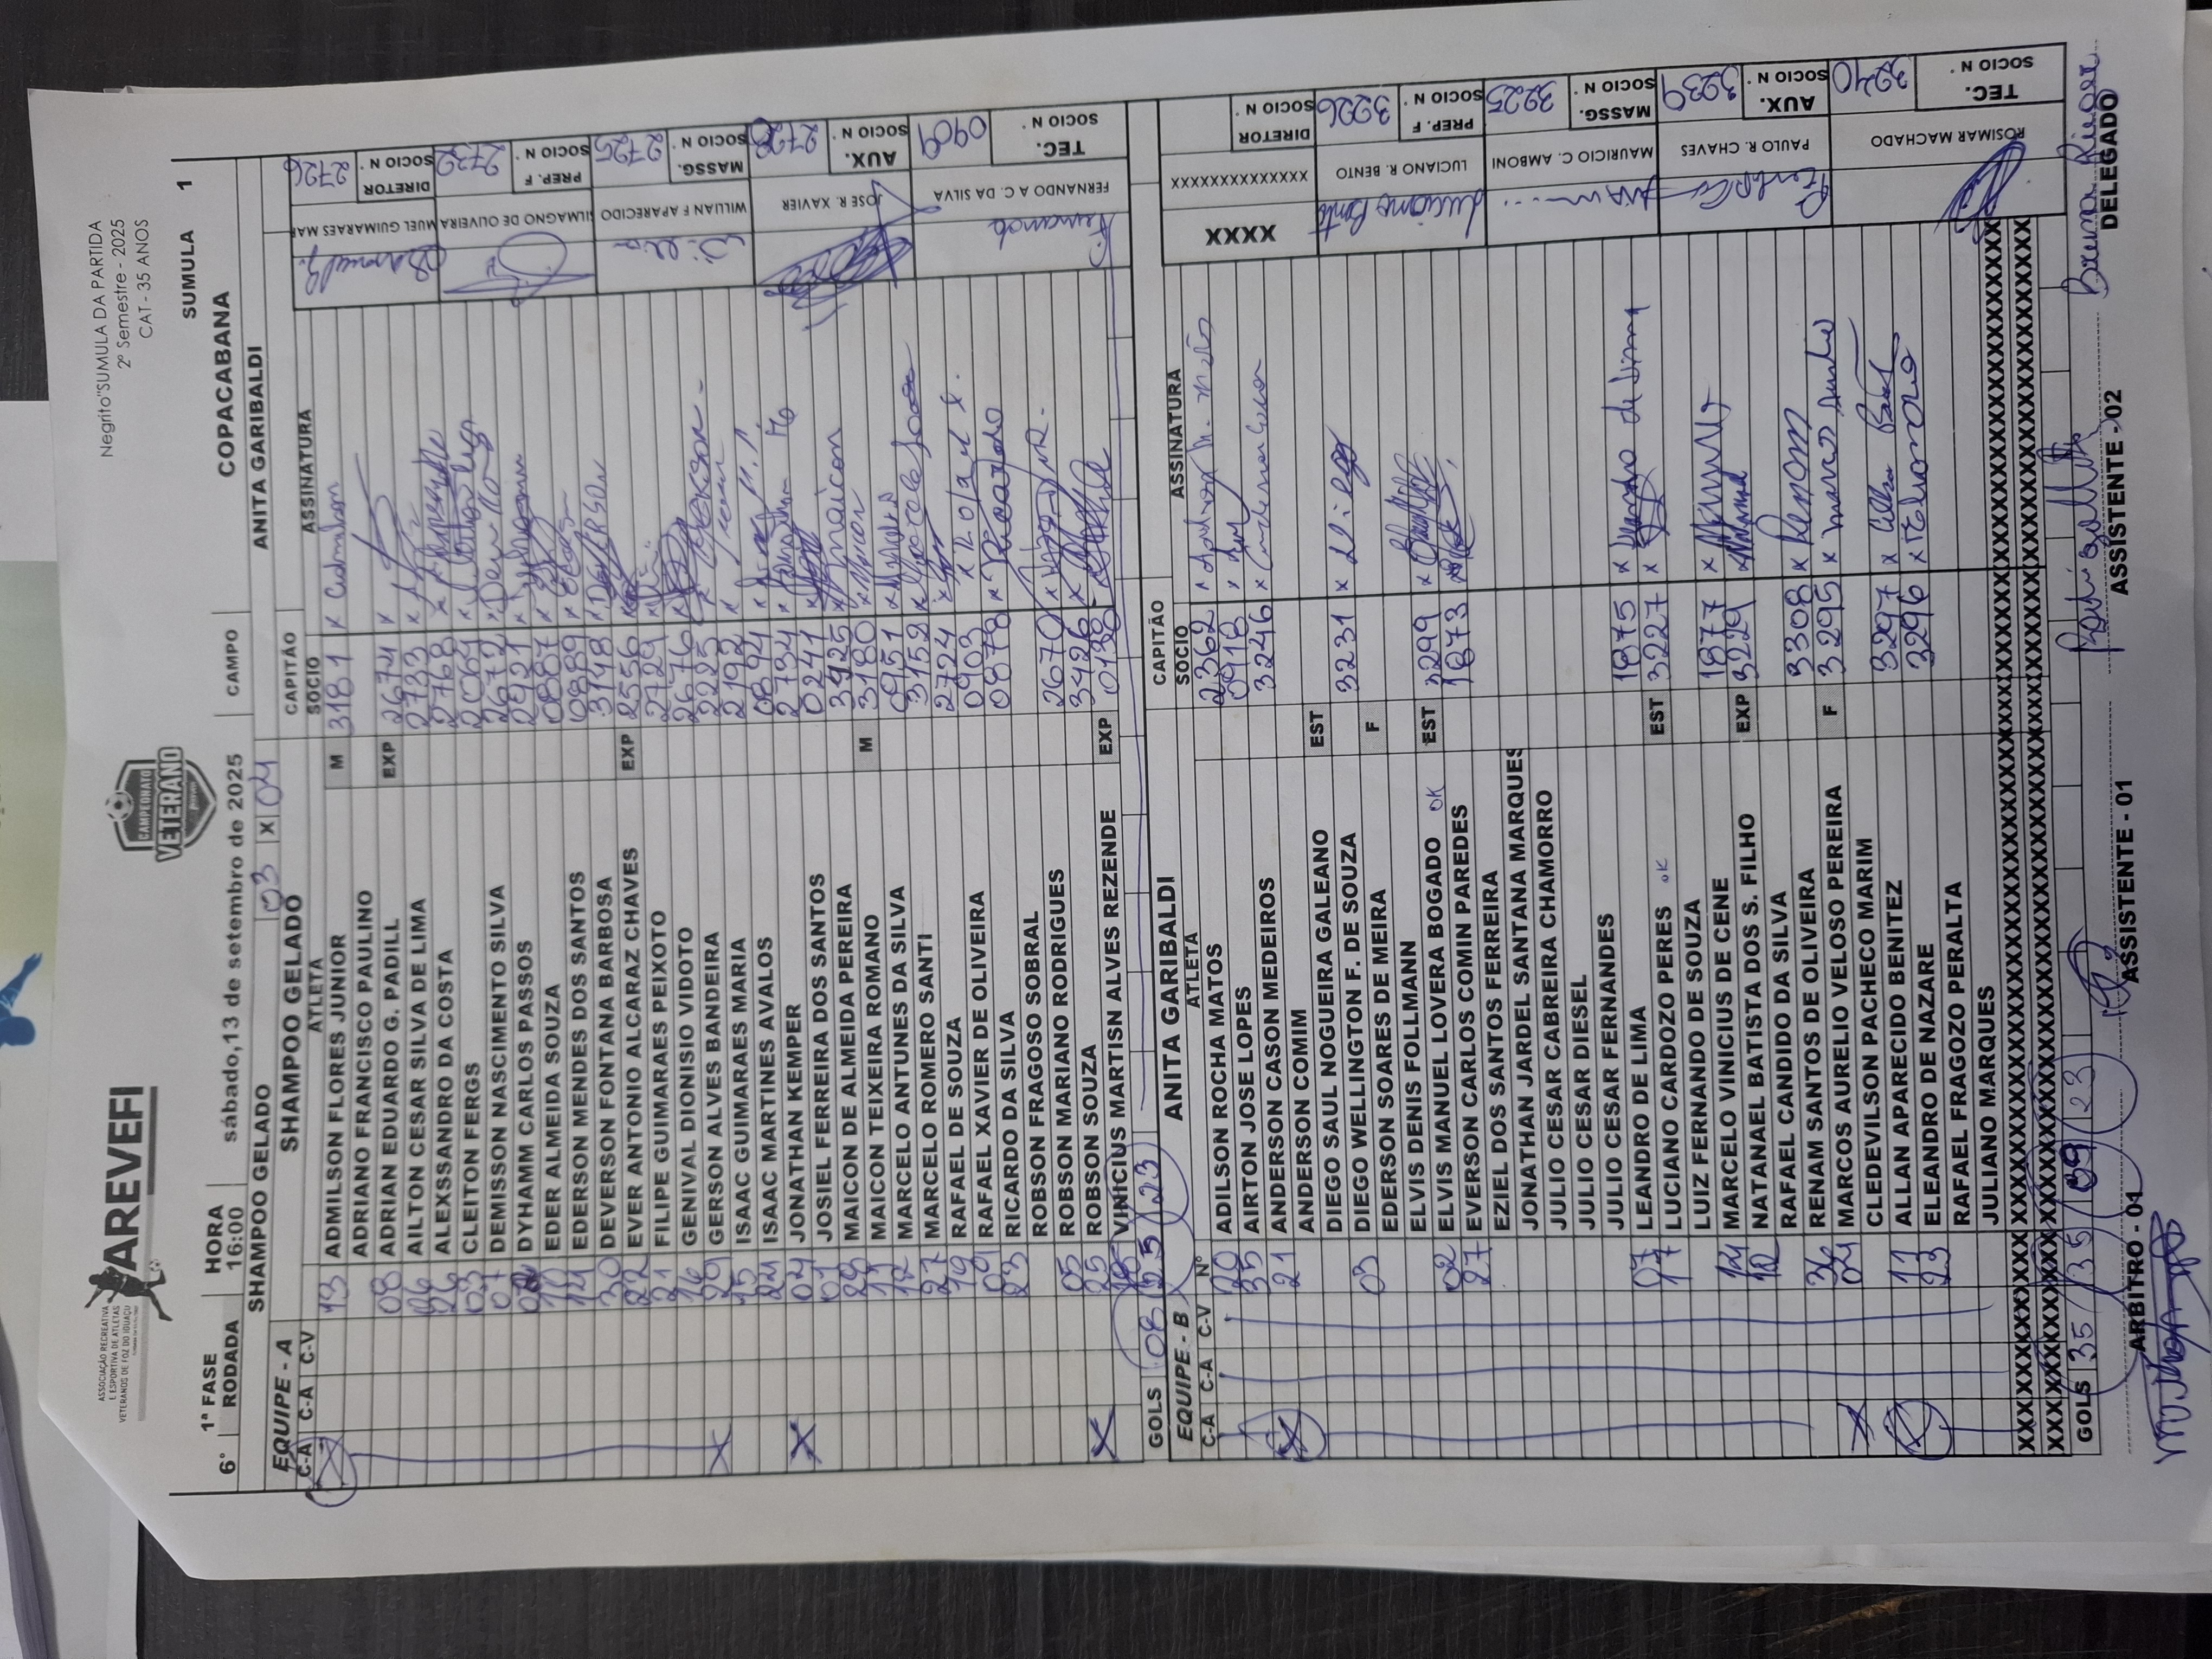 AREVEFI
ASSOCIAÇÃO RECREATIVA
E ESPORTIVA DE ATLETAS
VETERANOS DE FOZ DO IGUAÇU
CAMPEONATO
VETERANO
Negrito"SUMULA DA PARTIDA
2º Semestre - 2025
CAT - 35 ANOS
SUMULA 1
6° 1ª FASE HORA sábado,13 de setembro de 2025 CAMPO COPACABANA
RODADA 16:00
SHAMPOO GELADO 03 X 04 ANITA GARIBALDI
EQUIPE - A SHAMPOO GELADO CAPITÃO
C-A C-A C-V ATLETA SOCIO ASSINATURA
13 ADMILSON FLORES JUNIOR M 3181 x
ADRIANO FRANCISCO PAULINO
08 ADRIAN EDUARDO G. PADILL EXP 2674 x
AILTON CESAR SILVA DE LIMA 2733 x
26 ALEXSSANDRO DA COSTA 2768 x
03 CLEITON FERGS 2064 x
07 DEMISSON NASCIMENTO SILVA 2672 x
DYHAMM CARLOS PASSOS 2921 x
10 EDER ALMEIDA SOUZA 0887 x
14 EDERSON MENDES DOS SANTOS 0889 x Eder
30 DEVERSON FONTANA BARBOSA 3148 x DEVERSON
22 EVER ANTONIO ALCARAZ CHAVES EXP 2556 x
21 FILIPE GUIMARAES PEIXOTO 2729 x
16 GENIVAL DIONISIO VIDOTO 2676 x
29 GERSON ALVES BANDEIRA 2225 x GERSON
15 ISAAC GUIMARAES MARIA 2192 x
24 ISAAC MARTINES AVALOS 0894 x
04 JONATHAN KEMPER 2734 x
01 JOSIEL FERREIRA DOS SANTOS 0241 x
28 MAICON DE ALMEIDA PEREIRA 3425 x maicon
11 MAICON TEIXEIRA ROMANO M 3180 x Maicon
12 MARCELO ANTUNES DA SILVA 0951 x
27 MARCELO ROMERO SANTI 3152 x
19 RAFAEL DE SOUZA 2724 x
09 RAFAEL XAVIER DE OLIVEIRA 0903 x Rafael X.
23 RICARDO DA SILVA 0878 x Ricardo
ROBSON FRAGOSO SOBRAL
05 ROBSON MARIANO RODRIGUES 2670 x
25 ROBSON SOUZA 3426 x
VINICIUS MARTISN ALVES REZENDE EXP 0138
GOLS 08 25 23
2726 SOCIO N°. DIRETOR MUEL GUIMARAES MAR
2732 SOCIO N°. PREP. F SILMAGNO DE OLIVEIRA
2725 SOCIO N°. MASSG. WILLIAN F APARECIDO
2728 SOCIO N°. AUX. JOSE R. XAVIER
0909 SOCIO N°. TEC. FERNANDO A C. DA SILVA Fernando
EQUIPE - B ANITA GARIBALDI CAPITÃO
C-A C-A C-V N° ATLETA SOCIO ASSINATURA
20 ADILSON ROCHA MATOS 2362 x
35 AIRTON JOSE LOPES 0918 x
21 ANDERSON CASON MEDEIROS 3246 x Anderson Cason
ANDERSON COMIM
DIEGO SAUL NOGUEIRA GALEANO EST
03 DIEGO WELLINGTON F. DE SOUZA 3231 x Diego
EDERSON SOARES DE MEIRA F
ELVIS DENIS FOLLMANN
02 ELVIS MANUEL LOVERA BOGADO OK EST 3299 x
27 EVERSON CARLOS COMIN PAREDES 1873 x
EZIEL DOS SANTOS FERREIRA
JONATHAN JARDEL SANTANA MARQUES
JULIO CESAR CABREIRA CHAMORRO
JULIO CESAR DIESEL
JULIO CESAR FERNANDES
07 LEANDRO DE LIMA 1875 x Leandro de Lima
17 LUCIANO CARDOZO PERES OK EST 3227 x
LUIZ FERNANDO DE SOUZA
14 MARCELO VINICIUS DE CENE 1877 x
12 NATANAEL BATISTA DOS S. FILHO EXP 3229 x
RAFAEL CANDIDO DA SILVA
36 RENAM SANTOS DE OLIVEIRA 3308 x Renam
04 MARCOS AURELIO VELOSO PEREIRA F 3295 x marcos Aurelio
CLEDEVILSON PACHECO MARIM
11 ALLAN APARECIDO BENITEZ 3297 x Allan
23 ELEANDRO DE NAZARE 3296 x
RAFAEL FRAGOZO PERALTA
JULIANO MARQUES
GOLS 35 35 09 23
XXXX XXXXXXXXXXXXX DIRETOR SOCIO N°.
Luciano Bento LUCIANO R. BENTO PREP. F SOCIO N°. 3226
MAURICIO C. AMBONI MASSG. SOCIO N°. 3225
PAULO R. CHAVES AUX. SOCIO N°. 3239
ROSIMAR MACHADO TEC. SOCIO N°. 3240
ARBITRO - 01 ASSISTENTE - 01 ASSISTENTE - 02 DELEGADO